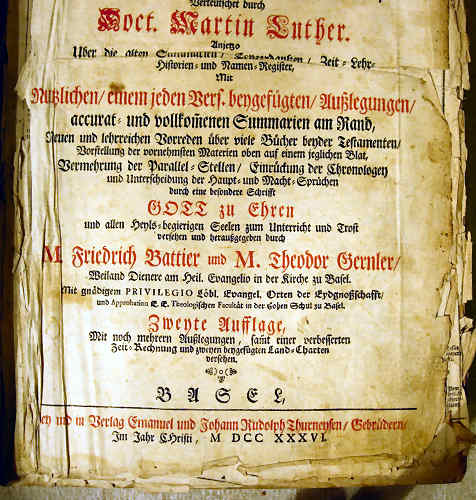 Verteutschet durch
Doct. Martin Luther.
Anjetzo
Uber die alten Summarien/ Zeit- Lehr-
Historien- und Namen-Register,
Mit
Nutzlichen/ einem jeden Vers. beygefügten/ Außlegungen/
accurat- und vollkom̃enen Summarien am Rand,
Neuen und lehrreichen Vorreden über viele Bücher beyder Testamenten/
Vorstellung der vornehmsten Materien oben auf einem jeglichen Blat,
Vermehrung der Parallel-Stellen/ Einrückung der Chronologey
und Unterscheidung der Haupt- und Macht-Sprüchen
durch eine besondere Schrifft
GOTT zu Ehren
und allen Heyls-begierigen Seelen zum Unterricht und Trost
versehen und herausgegeben durch
M. Friedrich Battier und M. Theodor Gernler/
Weiland Dienere am Heil. Evangelio in der Kirche zu Basel.
Mit gnädigem PRIVILEGIO Löbl. Evangel. Orten der Eydgnoßschafft/
und Approbation E. E. Theologischen Facultät in der Hohen Schul zu Basel.
Zweyte Aufflage,
Mit noch mehrern Außlegungen, sam̃t einer verbesserten
Zeit-Rechnung und zweyen beygefügten Land-Charten
versehen.
BASEL,
ey und in Verlag Emanuel und Johann Rudolph Thurneysen/ Gebrüdern/
Im Jahr CHristi, M DCC XXXVI.